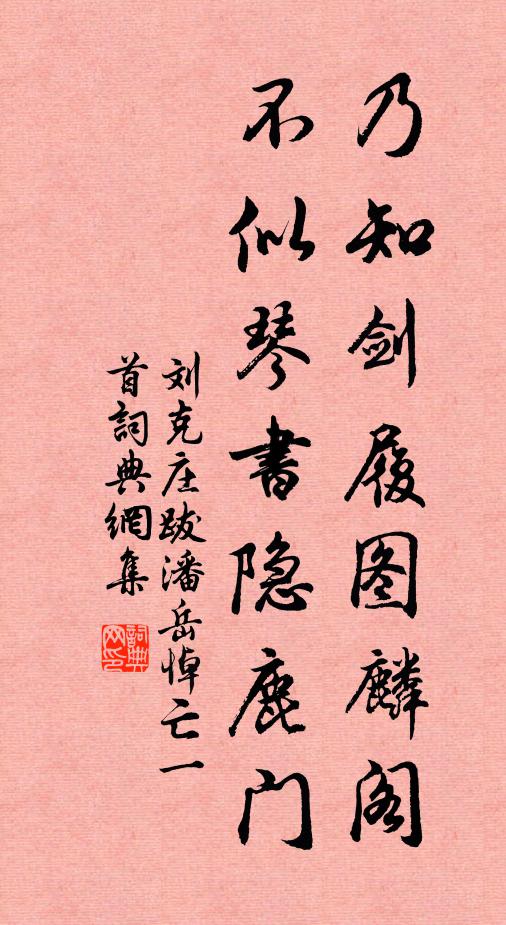 乃知剑履图麟阁
不似琴書隐鹿门
刘克庄跋潘岳悼亡一
首詞典網集
詞典
网印